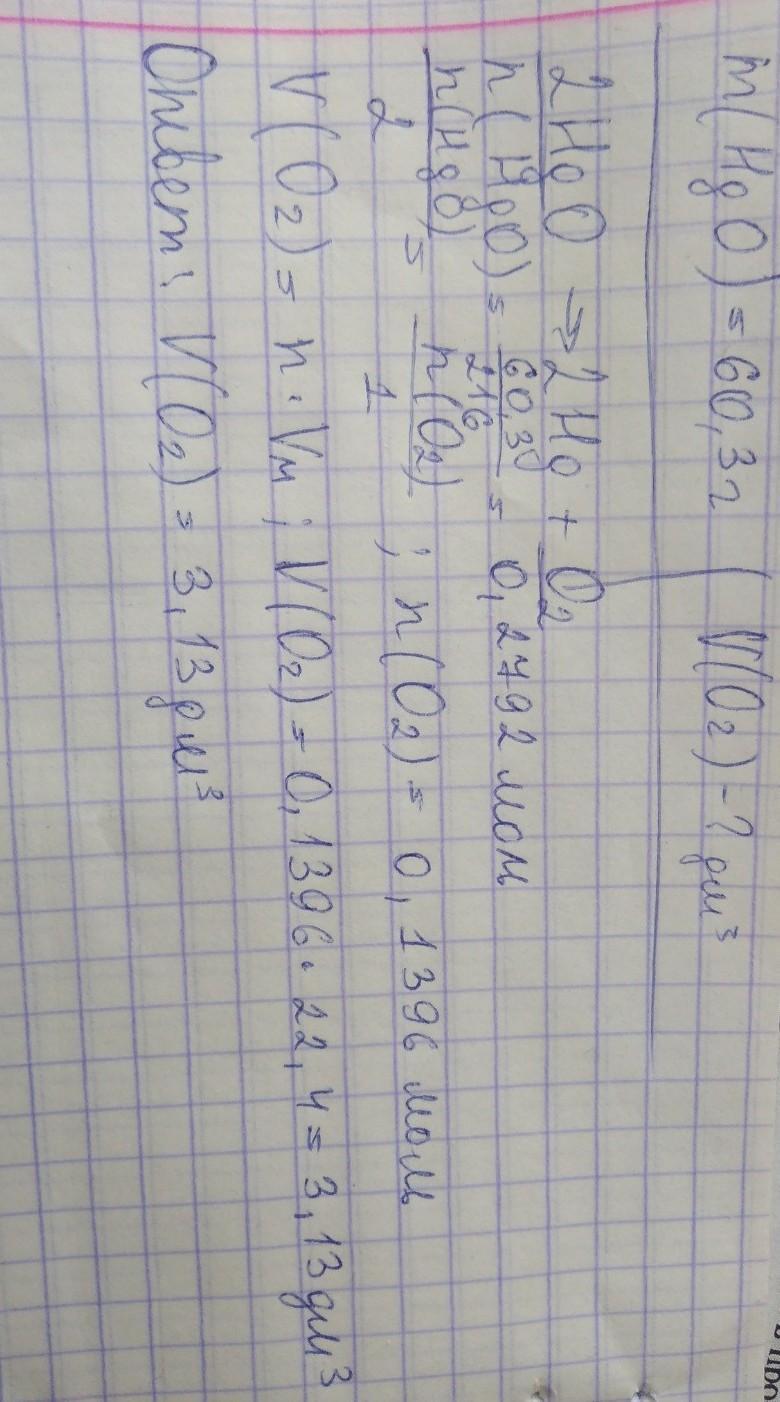 m(HgO) = 60,3г | V(O₂) - ? дм³
2HgO → 2Hg + O₂
n(HgO) = 60,30/216 = 0,2792 моль
n(HgO)/2 = n(O₂)/1 ; n(O₂) = 0,1396 моль
V(O₂) = n · Vм ; V(O₂) = 0,1396 · 22,4 = 3,13 дм³
Ответ: V(O₂) = 3,13 дм³